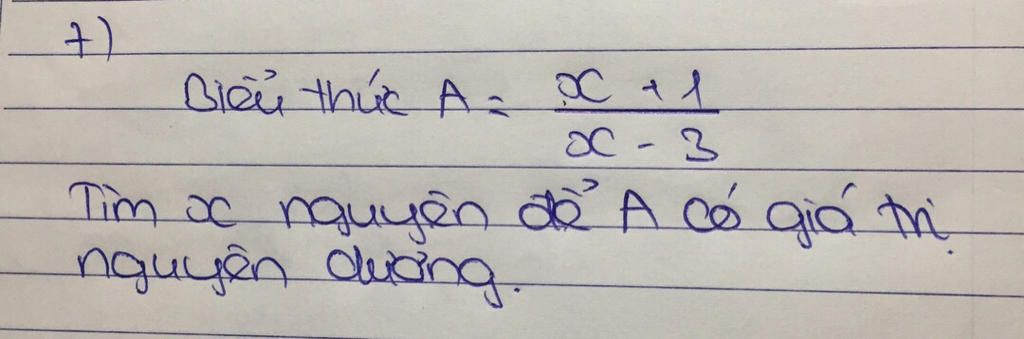 7)
Biểu thức A = \frac{x + 1}{x - 3}
Tìm x nguyên để A có giá trị
nguyên dương.